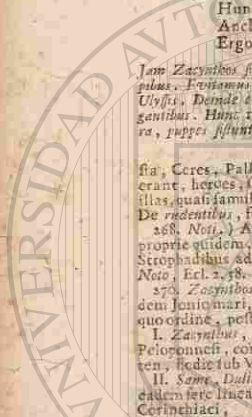 Hun
Anch
Ergo
Jam Zacynthos
pibus. Evitamus
Ulyssis. Deinde
gantibus. Hunc
ra, puppes sistunt
sta, Ceres, Pall
erant, heroes,
illas, quasi famul
De rudentibus, s
268. Noti.) A
proprie quidem.
Strophadibus ad
Noto, Ecl. 2. 58.
270. Zacynthos
dem Jonio mari,
quo ordine, post
I. Zacynthus,
Peloponnesi, con
ten, hodie sub V
II. Same, Duli
eadem fere linea
Corinthiaci,
VERSID AD AVTO